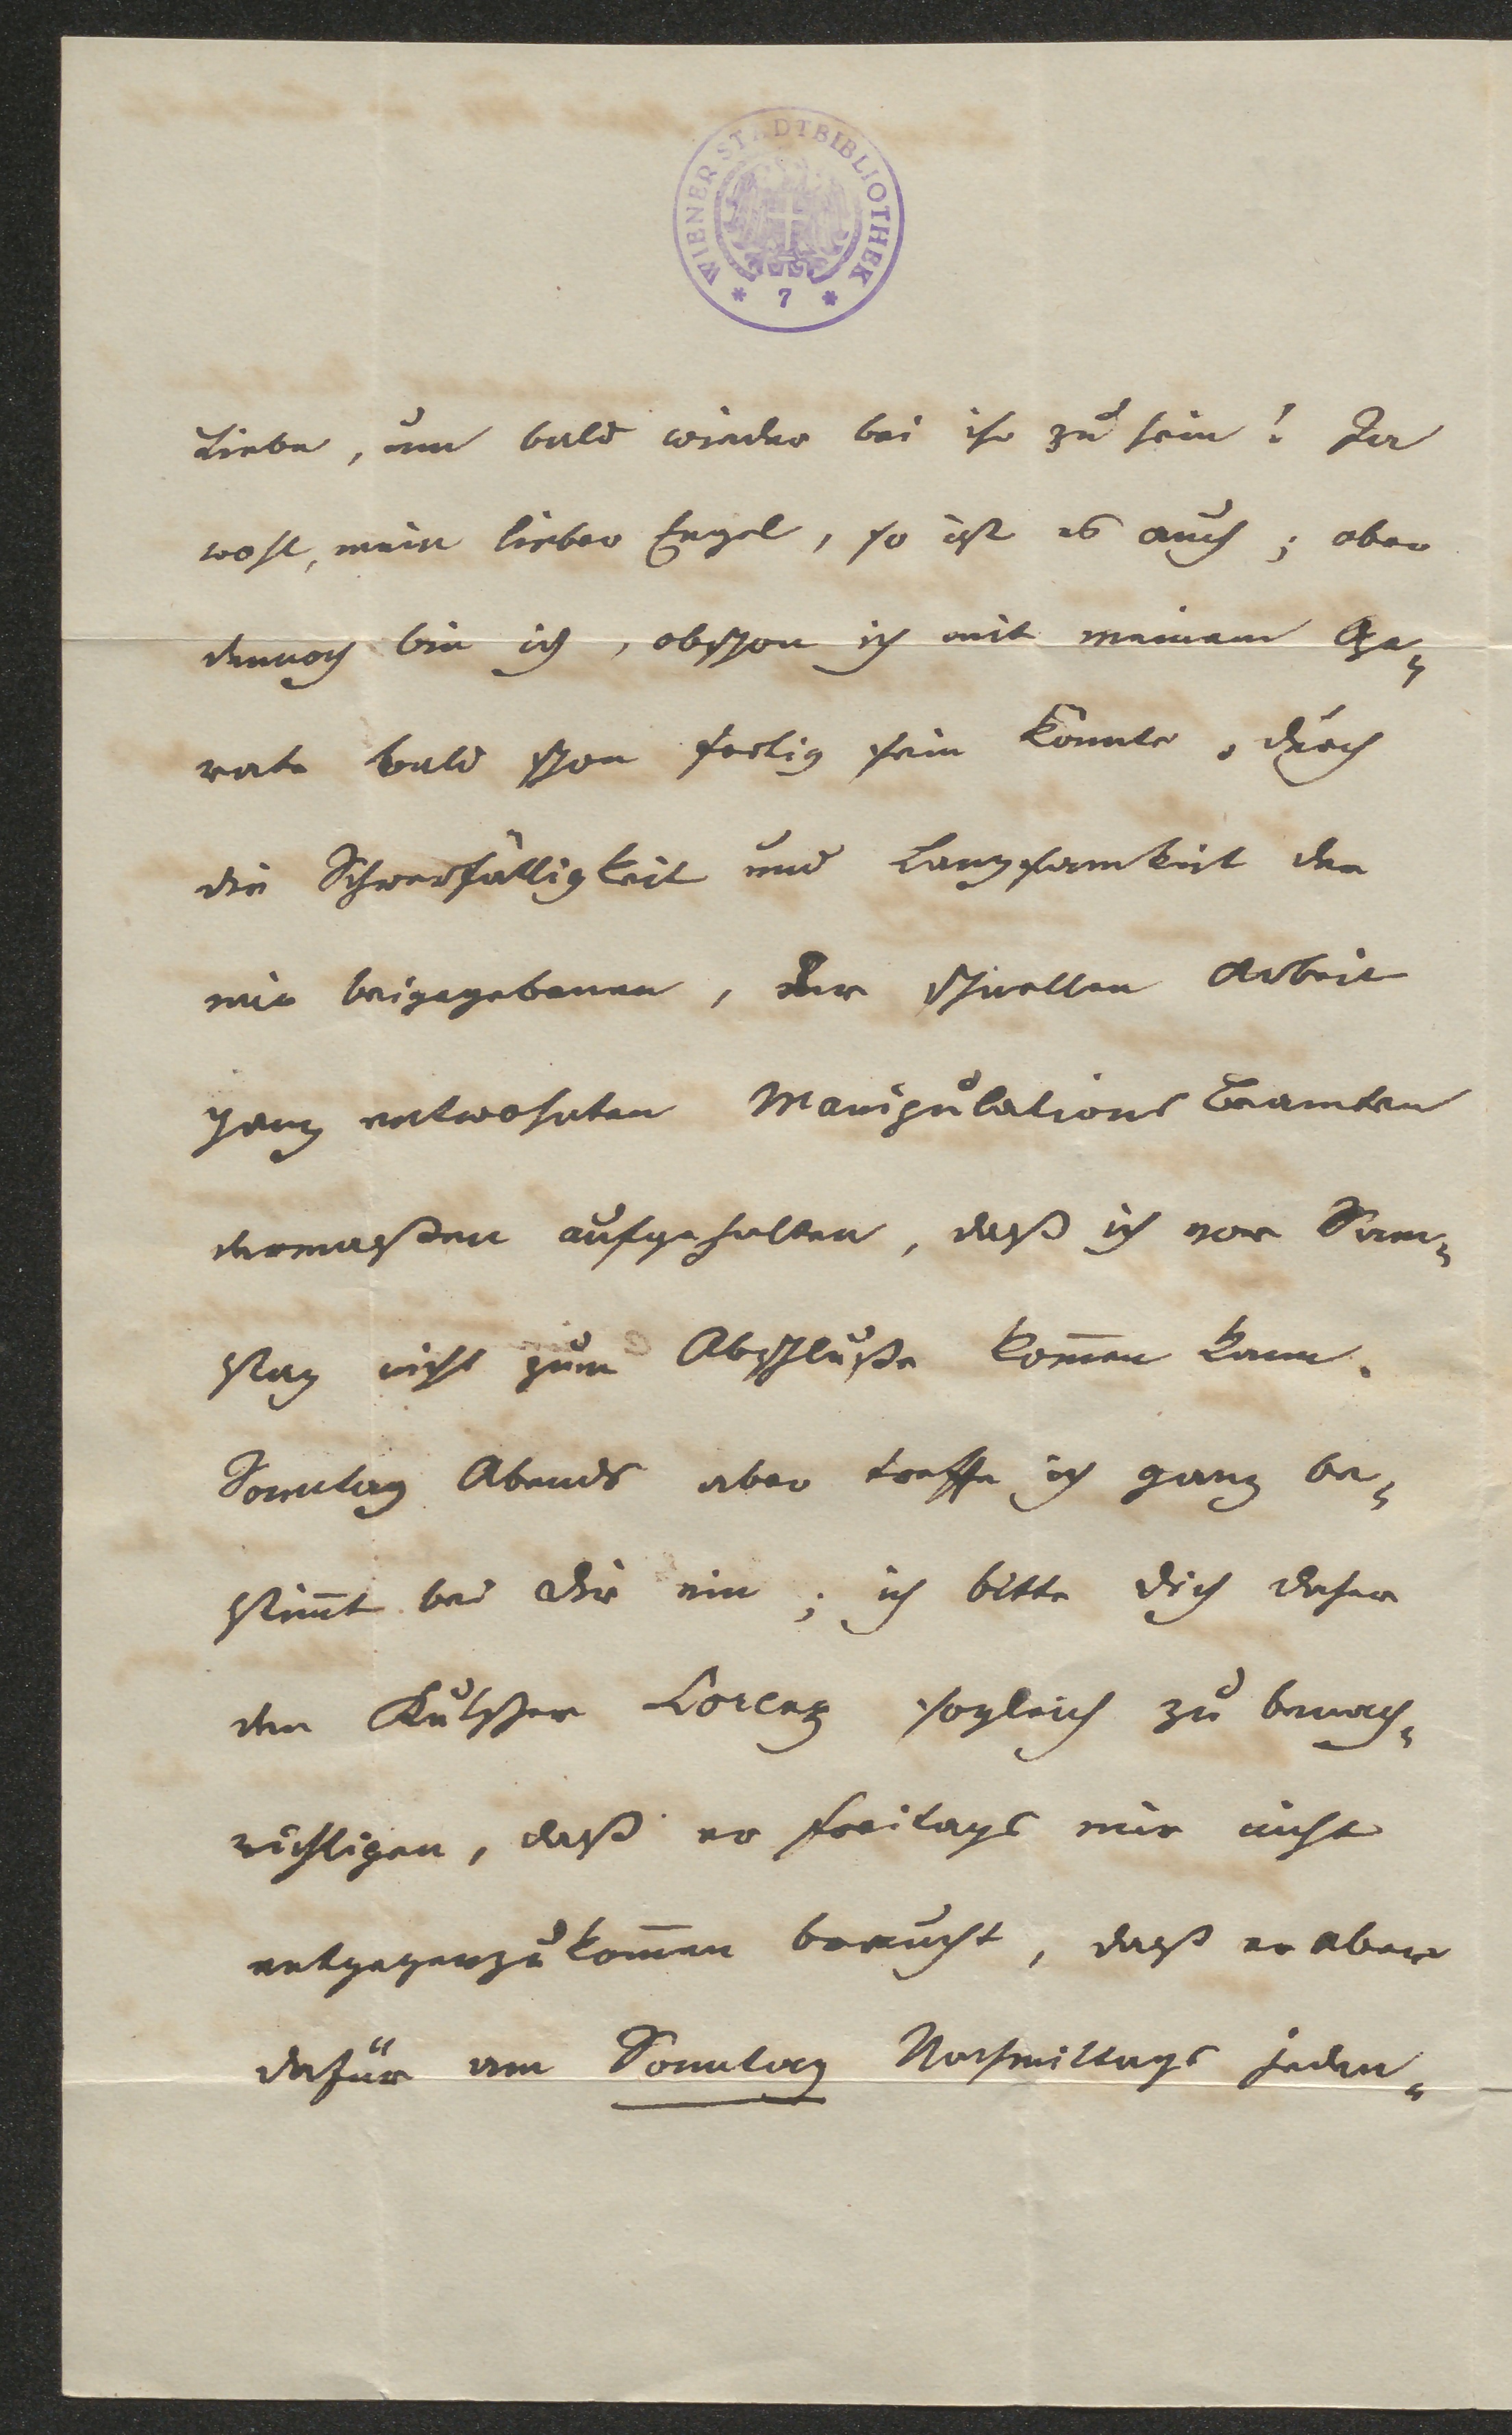 WIENER STADTBIBLIOTHEK
* 7 *
Liebe, um bald wieder bei ihr zu sein! Ja
wohl, mein lieber Engel, so ist es auch; aber
dennoch bin ich, obschon ich mit meinem Ope¬
rate bald schon fertig sein könnte, durch
die Schwerfälligkeit und Langsamkeit der
mir beigegebenen, der schnellen Arbeit
ganz entwohnten Manipulations Beamten
dermaßen aufgehalten, daß ich vor Sam¬
stag nicht zum Abschluße kom̅en kann.
Sonntag Abends aber treffe ich ganz be¬
stim̅t bei Dir ein; ich bitte Dich daher
den Kutscher Lorenz sogleich zu benach¬
richtigen, daß er Freitags mir nicht
entgegenzukom̅en braucht, daß er aber
dafür am Sonntag Nachmittags jeden¬